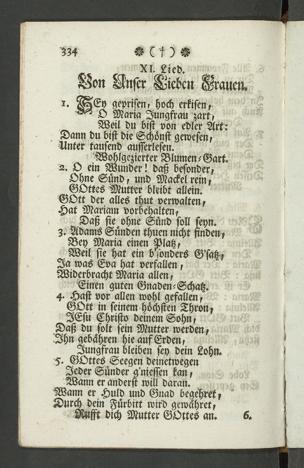 334 ❁ ( † ) ❁
XI. Lied.
Von Unser Lieben Frauen.
1. SEy geprisen, hoch erkisen,
O Maria Jungfrau zart,
Weil du bist von edler Art:
Dann du bist die Schönst gewesen,
Unter tausend ausserlesen.
Wohlgezierter Blumen-Gart.
2. O ein Wunder! daß besonder,
Ohne Sünd, und Mackel rein,
GOttes Mutter bleibt allein.
GOtt der alles thut verwalten,
Hat Mariam vorbehalten,
Daß sie ohne Sünd soll seyn.
3. Adams Sünden thuen nicht finden,
Bey Maria einen Platz,
Weil sie hat ein b'sonders G'satz,
Ja was Eva hat verfallen,
Widerbracht Maria allen,
Einen guten Gnaden-Schatz.
4. Hast vor allen wohl gefallen,
GOtt in seinem höchsten Thron,
JEsu Christo deinem Sohn,
Daß du solt sein Mutter werden,
Ihn gebähren hie auf Erden,
Jungfrau bleiben sey dein Lohn.
5. GOttes Seegen deinetwegen
Jeder Sünder g'niessen kan,
Wann er anderst will daran.
Wann er Huld und Gnad begehret,
Durch dein Fürbitt wird gewähret,
Rufft dich Mutter GOttes an. 6.